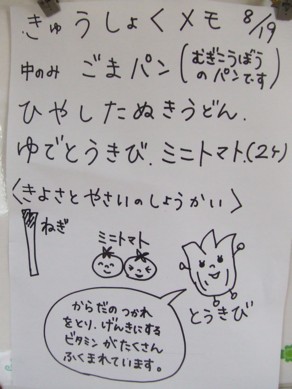 きゅうしょくメモ 8/19
中のみ ごまパン(むぎこうぼうのパンです)
ひやしたぬきうどん.
ゆでとうきび.ミニトマト.(2ケ)
〈きよさとやさいのしょうかい〉
ねぎ
ミニトマト
とうきび
からだの つかれ
をとり.げんきにする
ビタミン がたくさん
ふくまれています。